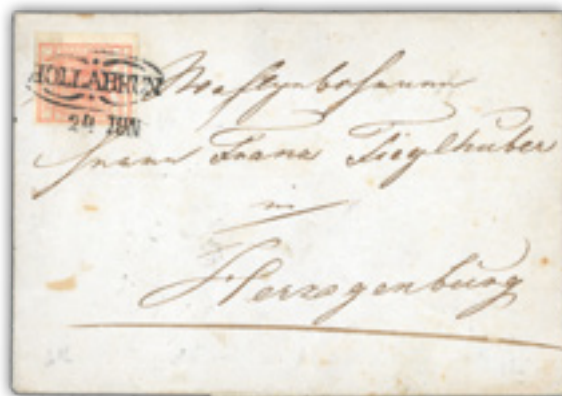 HOLLABRUN
29 JUN
Wohlgebohrnen
Herrn Franz Fieglhuber
in
Herzogenburg